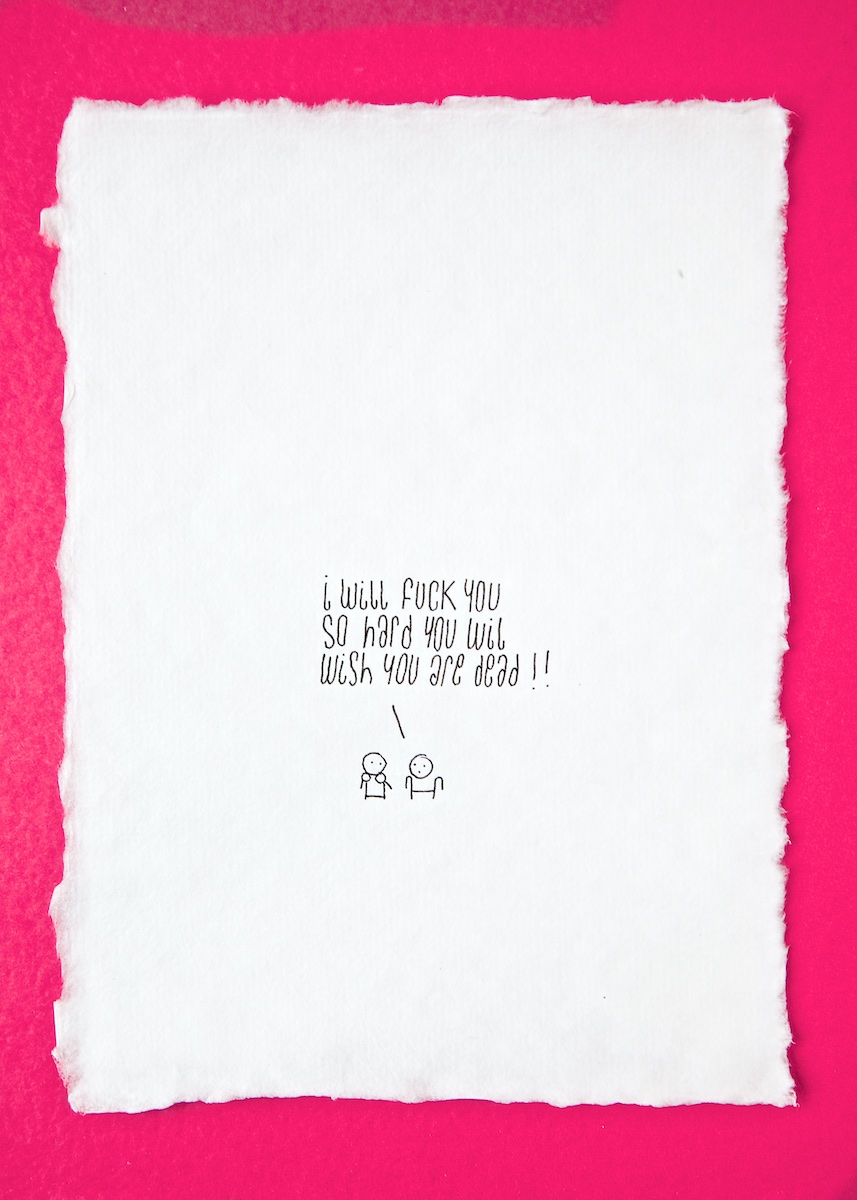 i will fuck you
so hard you wil
wish you are dead !!